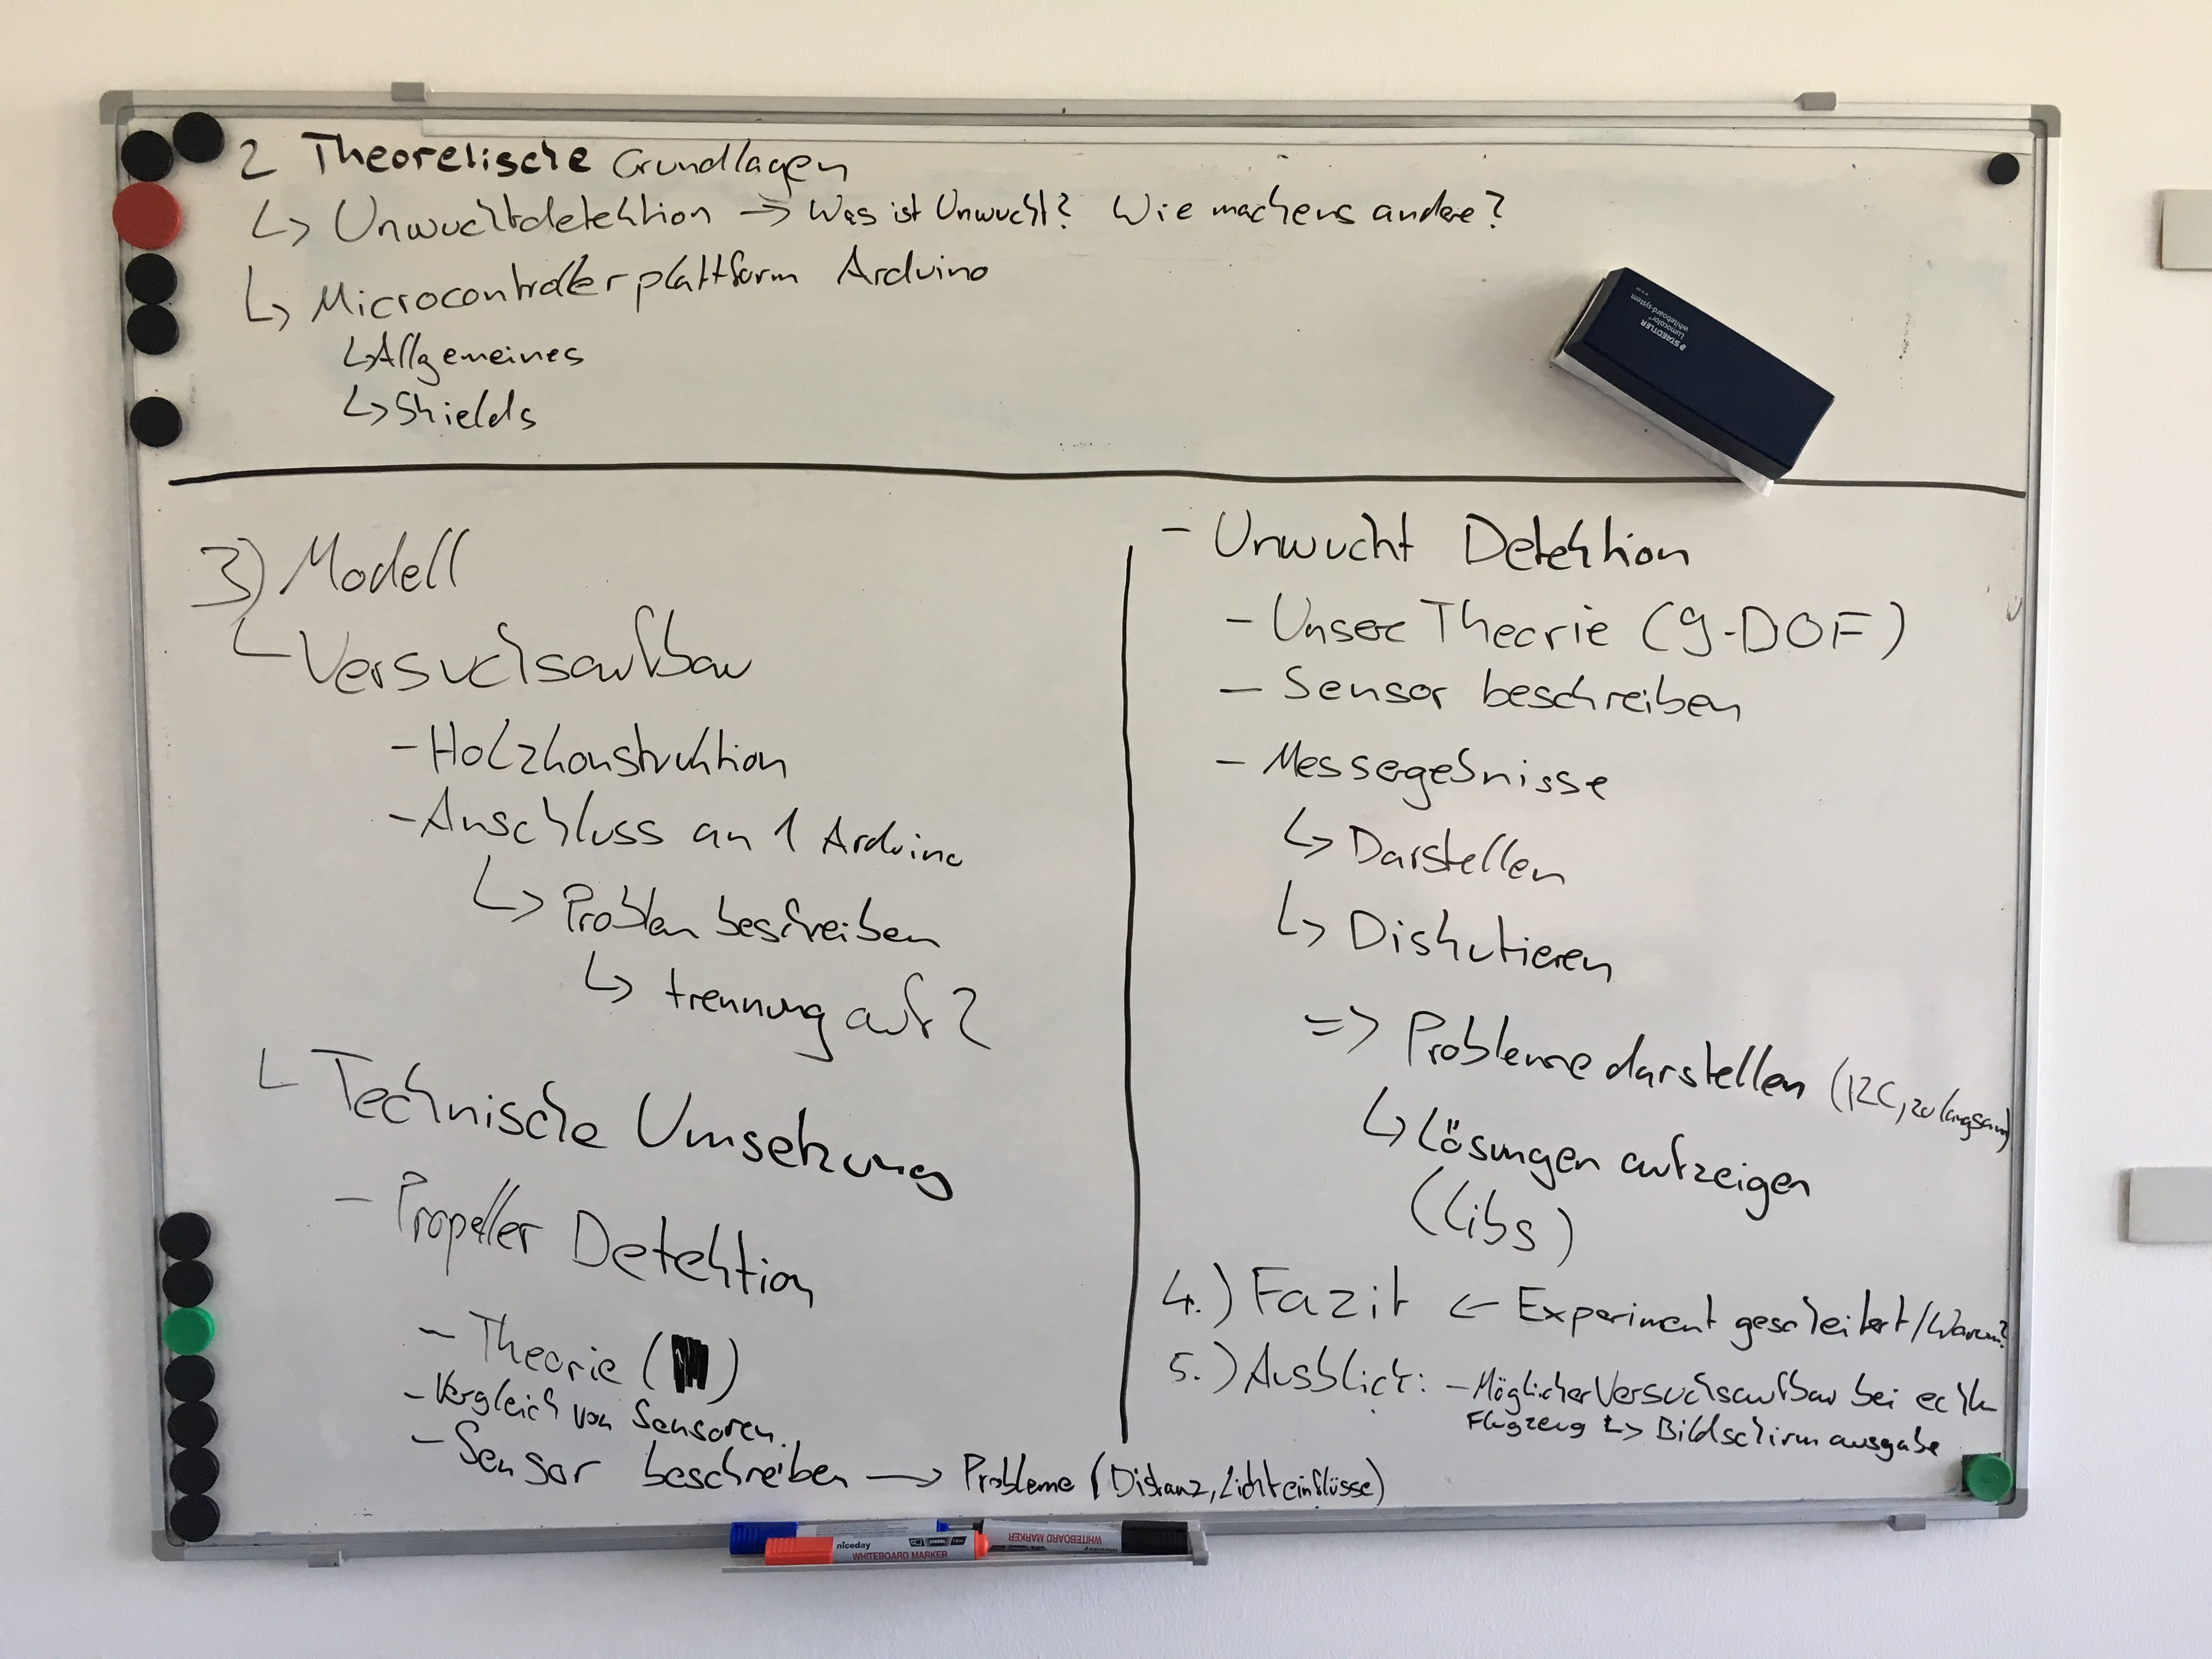 2 Theoretische Grundlagen
↳ Unwuchtdetektion → Was ist Unwucht? Wie machens andere?
↳ Microcontrollerplattform Arduino
↳ Allgemeines
↳ Shields
STAEDTLER
Lumocolor
whiteboard-system
3) Modell
Versuchsaufbau
- Holzkonstruktion
- Anschluss an 1 Arduino
↳ Problem beschreiben
↳ trennung auf 2
Technische Umsetzung
- Propeller Detektion
- Theorie ( )
- Vergleich von Sensoren.
- Sensor beschreiben → Probleme (Distanz, Lichteinflüsse)
- Unwucht Detektion
- Unsere Theorie (9-DOF)
- Sensor beschreiben
- Messergebnisse
↳ Darstellen
↳ Diskutieren
=> Probleme darstellen (I2C, zu langsam)
↳ Lösungen aufzeigen
(Libs)
4.) Fazit ← Experiment gescheitert/Warum?
5.) Ausblick: - Möglicher Versuchsaufbau bei echtem
Flugzeug ↳ Bildschirmausgabe
niceday
WHITEBOARD MARKER
WHITEBOARD MARKER